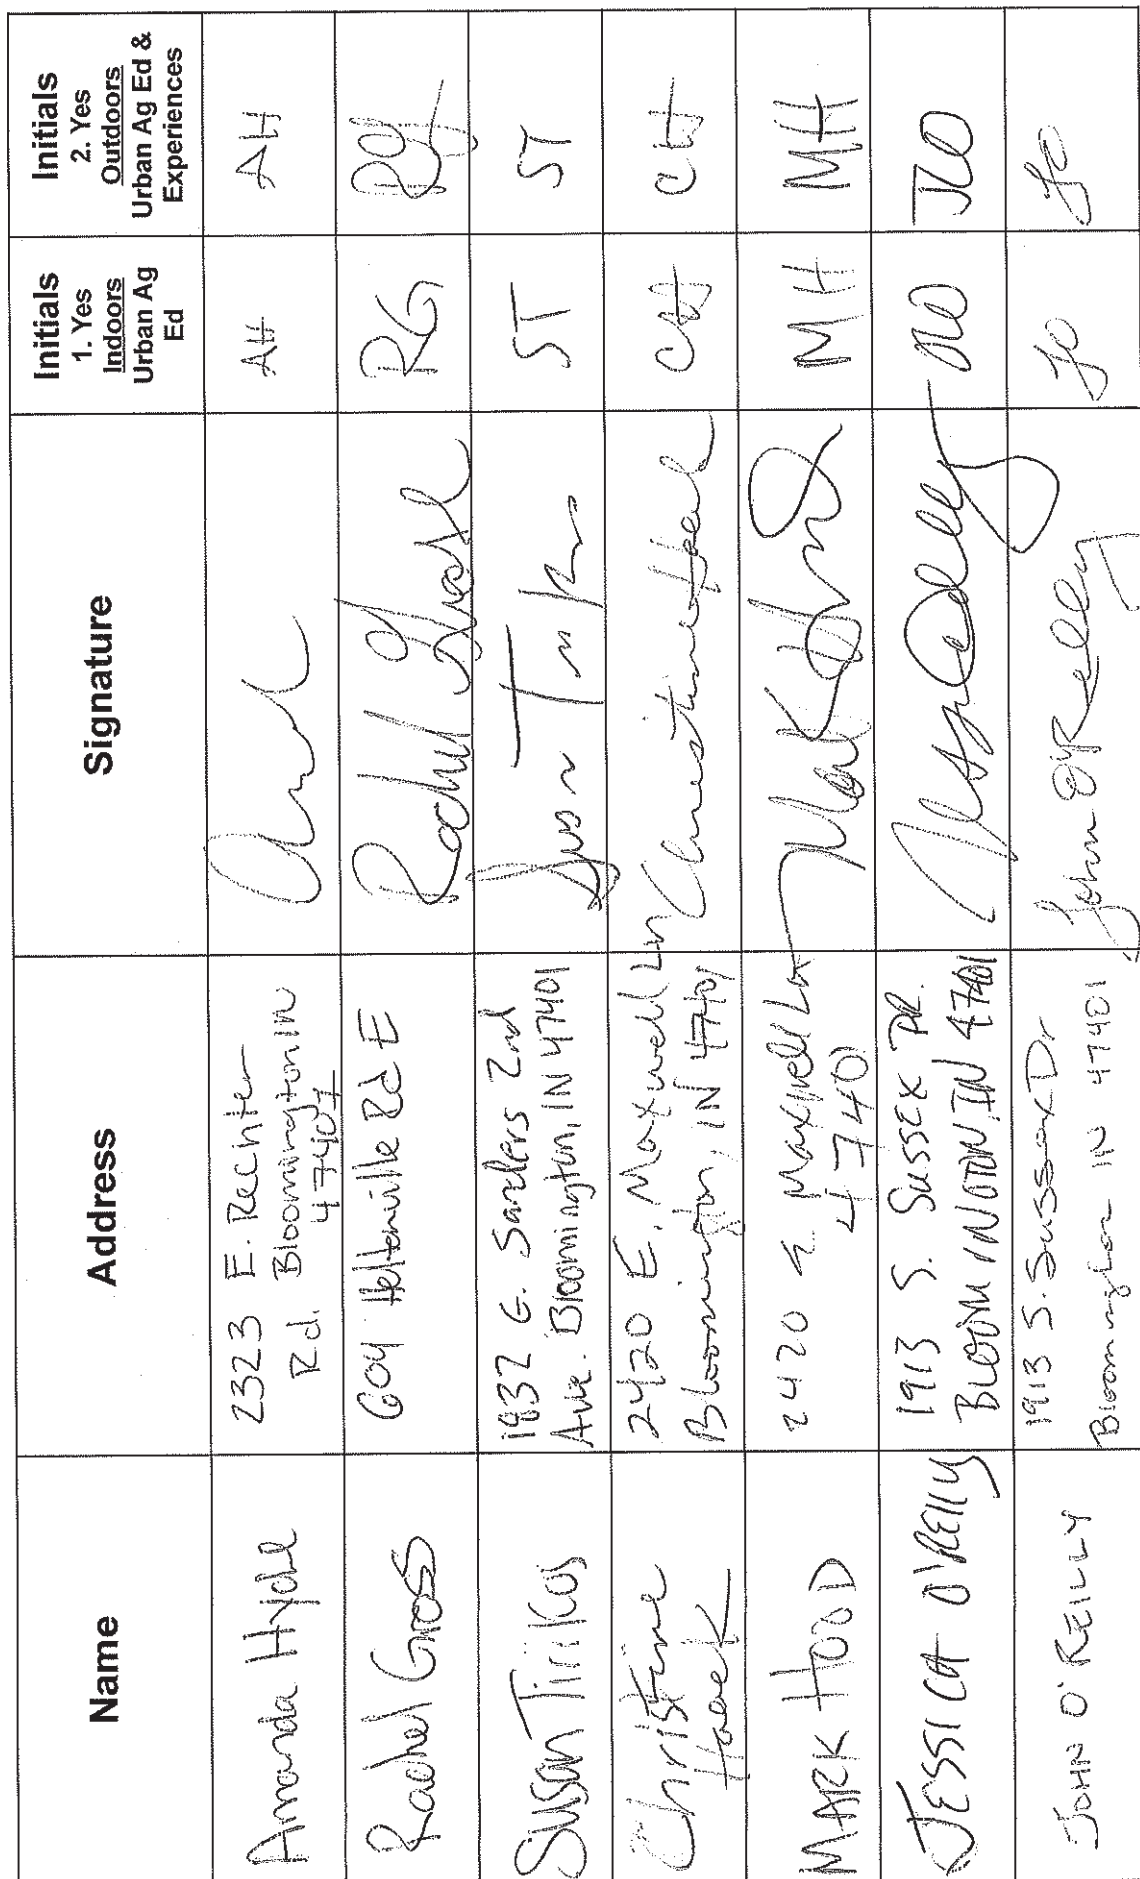 Name
Address
Signature
Initials
1. Yes
Indoors
Urban Ag
Ed
Initials
2. Yes
Outdoors
Urban Ag Ed &
Experiences
Amanda Hydel
2323 E. Rechter
Rd. Bloomington IN
47401
AH
AH
Rachel Gross
604 Heltonville Rd E
Rachel Gross
RG
RG
Susan Tirikos
1932 Sanders 2nd
Ave. Bloomington, IN 47401
ST
ST
Christine
Haack
2420 E. Maxwell Ln
Bloomington, IN 47401
Christine Haack
CH
CH
MARK HOOD
2420 E Maxwell Ln
47401
Mark Hood
MH
MH
JESSICA O'REILLY
1913 S. SUSSEX DR.
BLOOMINGTON, IN 47401
JLO
JOHN O'REILLY
1913 S. Sussex Dr
Bloomington IN 47401
John O'Reilly
JO
JO